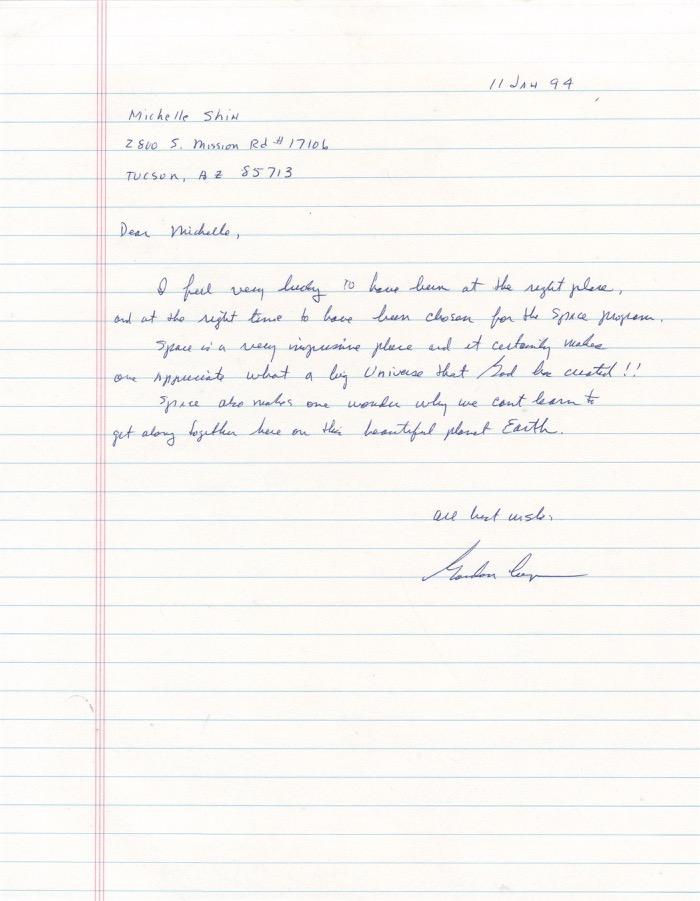 11 JAN 94
Michelle Shin
2800 S. Mission Rd #17106
Tucson, AZ 85713
Dear Michelle,
I feel very lucky to have been at the right place,
and at the right time to have been chosen for the Space program.
Space is a very impressive place and it certainly makes
one appreciate what a big Universe that God has created!!
Space also makes one wonder why we cant learn to
get along together here on this beautiful planet Earth.
All best wishes
Gordon Cooper